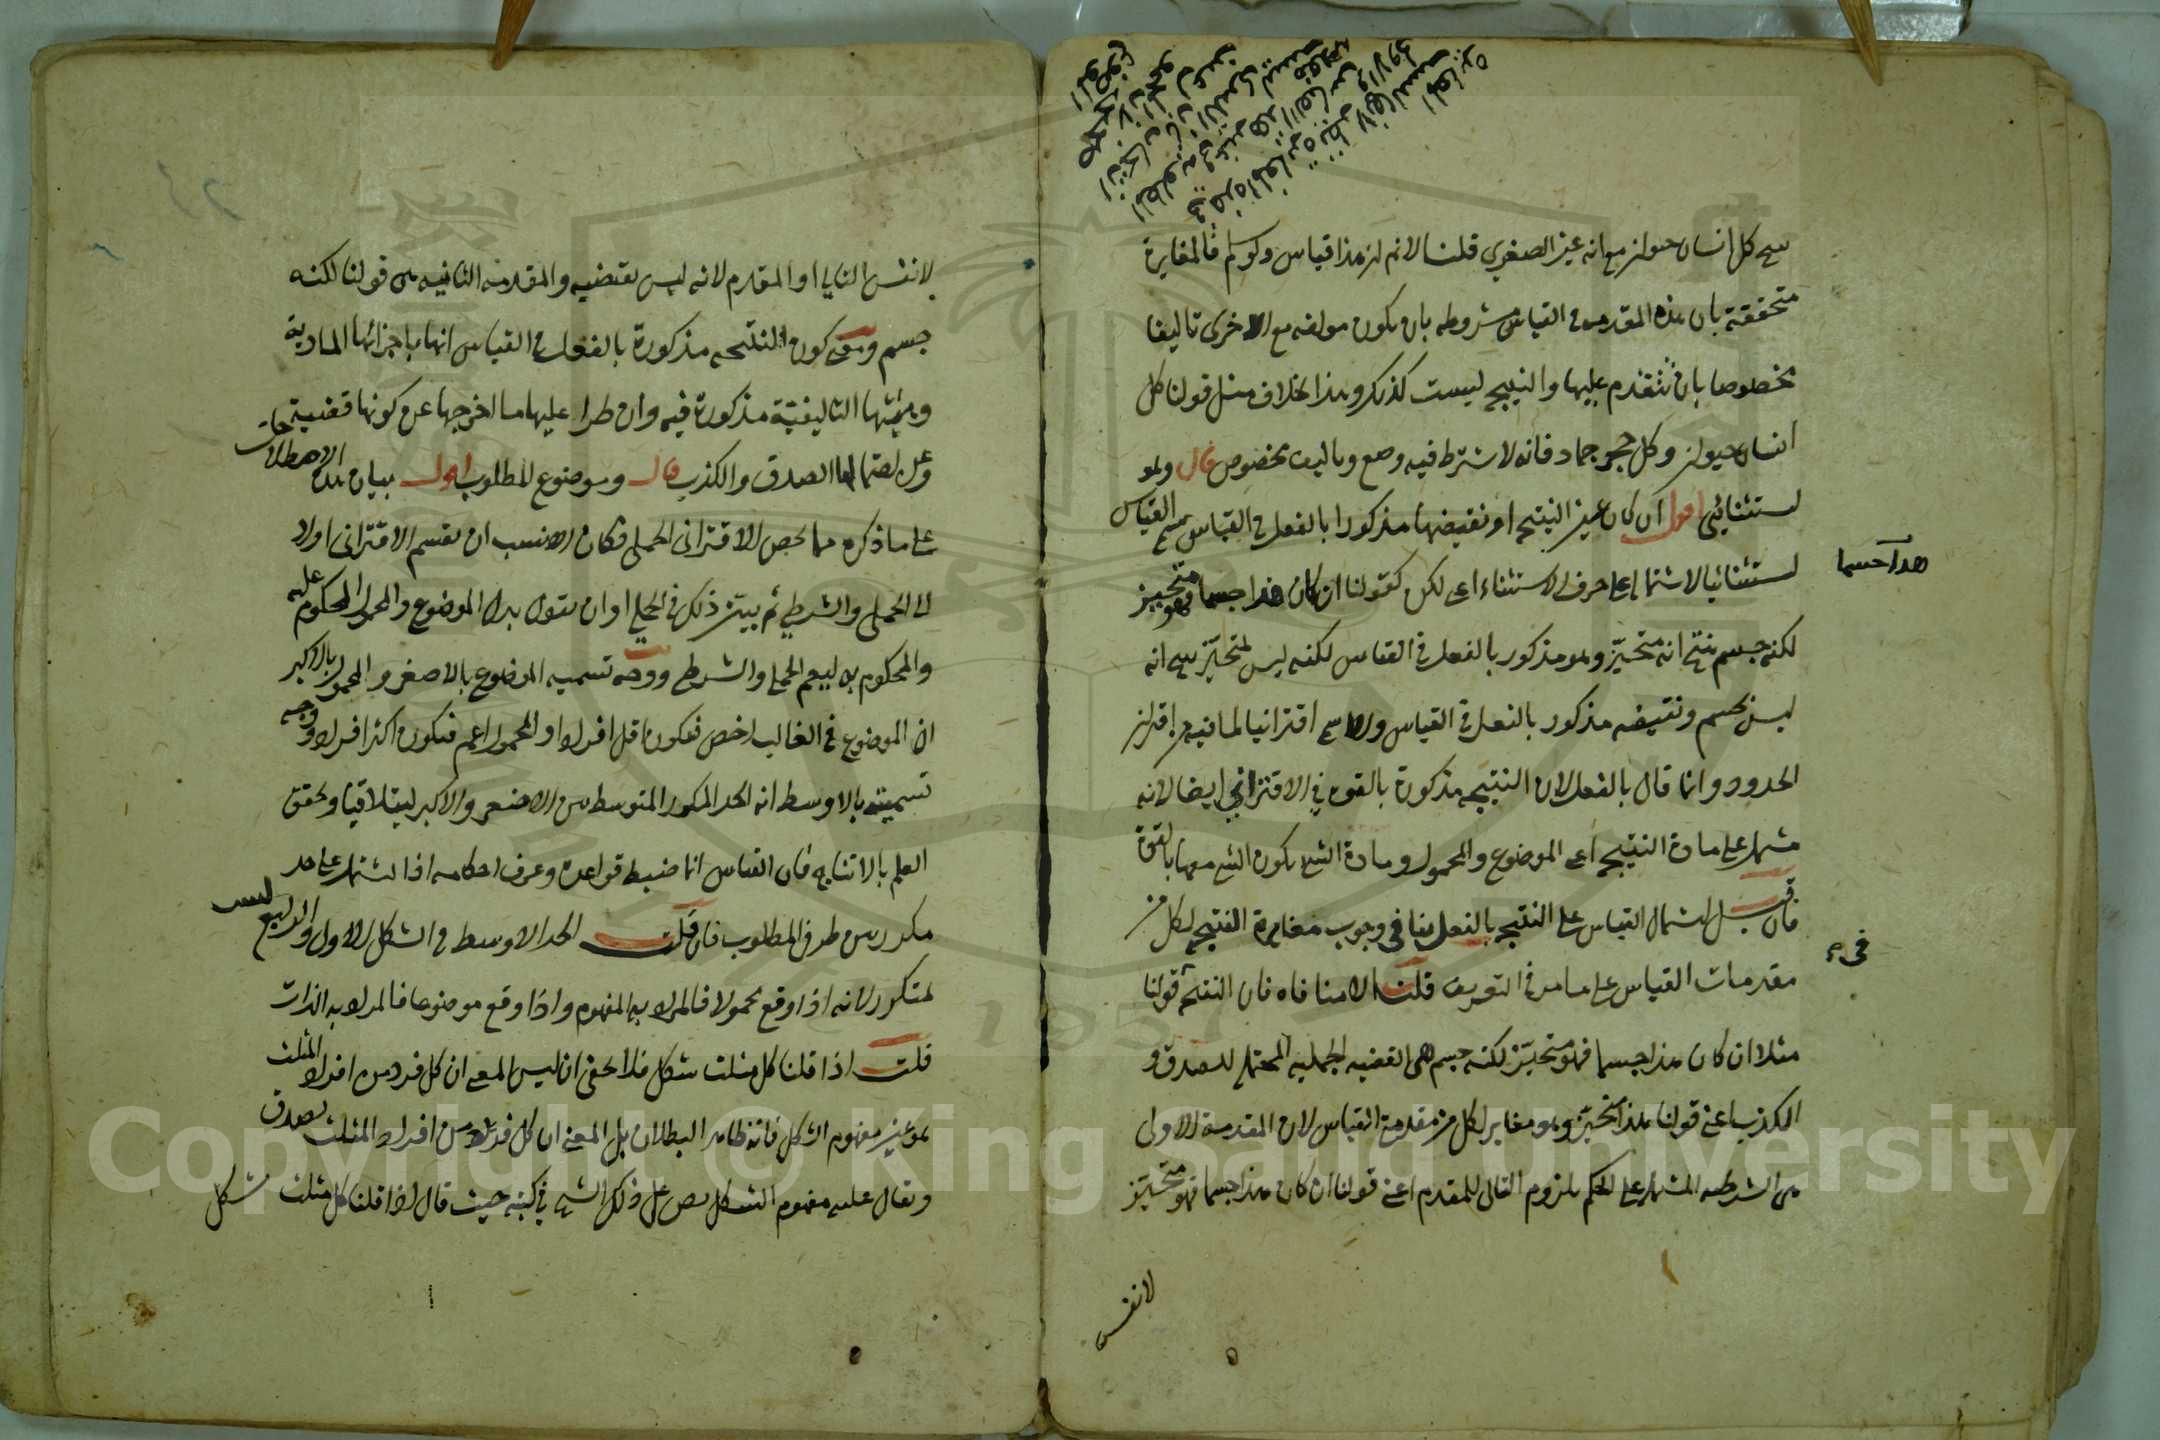 كل انسان حيوان مع انه عين الصغرى قلنا لانم ان هذا قياس ولو سلم فالمغايرة
متحققة بان هذه المقدمة في القياس مشروطه بان يكون مولفه مع الاخرى تاليفا
مخصوصا بان تتقدم عليها والنتيجه ليست كذلك وهذا بخلاف مثل قولنا كل
انسان حيوان وكل حجر جماد فانه لا شترط فيه وضع وتاليف مخصوص قال وهو
استثنائي اقول ان كان عين النتيجه او نقيضها مذكورا بالفعل في القياس سمى القياس
استثنائيا لاشتماله على حرف الاستثناء اعنى لكن كقولنا ان كان هذا جسما فهو متحيز
هذا جسما
لكنه جسم ينتج انه متحيز وهو مذكور بالفعل في القياس لكنه ليس بمتحيز ينتج انه
ليس بجسم ونقيضه مذكور بالفعل في القياس والا سمى اقترانيا لما فيه من اقتران
الحدود وانما قال بالفعل لان النتيجه مذكورة بالقوه في الاقتراني ايضا لانه
مشتمل على مادة النتيجه اعنى الموضوع والمحمول ومادة الشئ يكون الشئ معها بالقوة
فان قيل اشتمال القياس على النتيجه بالفعل ينافى وجوب مغايرة النتيجه لكل من
مقدمات القياس على ما مر في التعريف قلنا لا منافاه فان النتيجه في قولنا
مثلا ان كان هذا جسما فهو متحيز لكنه جسم هى القضيه الحمليه المحتمله للصدق و
الكذب اعنى قولنا هذا متحيز وهو مغاير لكل من مقدمتى القياس لان المقدمة الاولى
هى الشرطيه المشتمله على الحكم بلزوم التالى للمقدم اعنى قولنا ان كان هذا جسما فهو متحيز
لا نفس
لا نفس التالي او المقدم لانه ليس بقضيه والمقدمه الثانيه هى قولنا لكنه
جسم ومعنى كون النتيجه مذكورة بالفعل في القياس انها باجزائها المادية
وهيئتها التاليفيّة مذكورة فيه وان طرا عليها ما اخرجها عن كونها قضية
وعن احتمالها الصدق والكذب قال وموضوع المطلوب اقول بيان هذه الاصطلاحات
على ما ذكره مما يخص الاقترانى الحملى فكان الانسب ان يقسم الاقترانى اولا
الى الحملى والشرطي ثم يبين ذلك في الحملي او ان يقول بدل الموضوع والمحمول المحكوم عليه
والمحكوم به ليعم الحملى والشرطى ووجه تسميه الموضوع بالاصغر والمحمول بالاكبر
ان الموضوع في الغالب اخص فيكون اقل افرادا والمحمول اعم فيكون اكثر افرادا ووجه
تسميته بالاوسط انه الحد المكرر المتوسط بين الاصغر والاكبر ليتلاقيا ويحقق
العلم بالانتاج فان القياس انما ضبط قواعده وعرف احكامه اذا اشتمل على حد
مكرر بين طرفي المطلوب فان قلت الحد الاوسط في الشكل الاول والرابع ليس
بمتكرر لانه اذا وقع محمولا فالمراد به المفهوم واذا وقع موضوعا فالمراد به الذات
قلت اذا قلنا كل مثلث شكل فلا يخفى ان ليس المعنى ان كل فرد من افراد المثلث
هو عين مفهوم الشكل فانه ظاهر البطلان بل المعنى ان كل فرد من افراد المثلث يصدق
ويقال عليه مفهوم الشكل نص على ذلك الشيخ في كتبه حيث قال اذا قلنا كل مثلث شكل
Copyright © King Saud University
1957